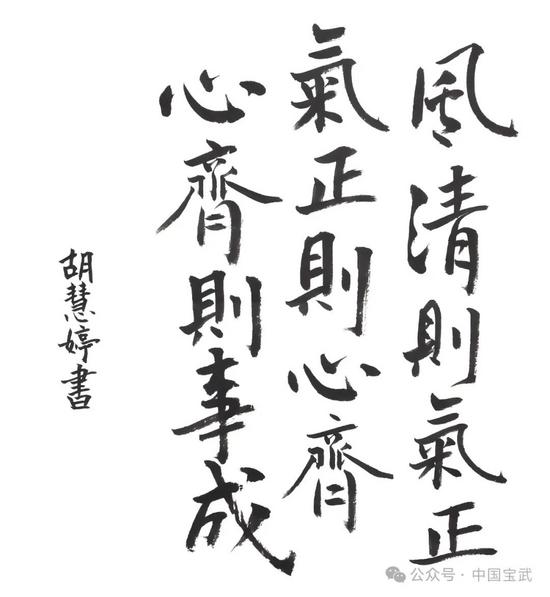 風清則氣正
氣正則心齊
心齊則事成
胡慧婷書
公众号·中国宝武